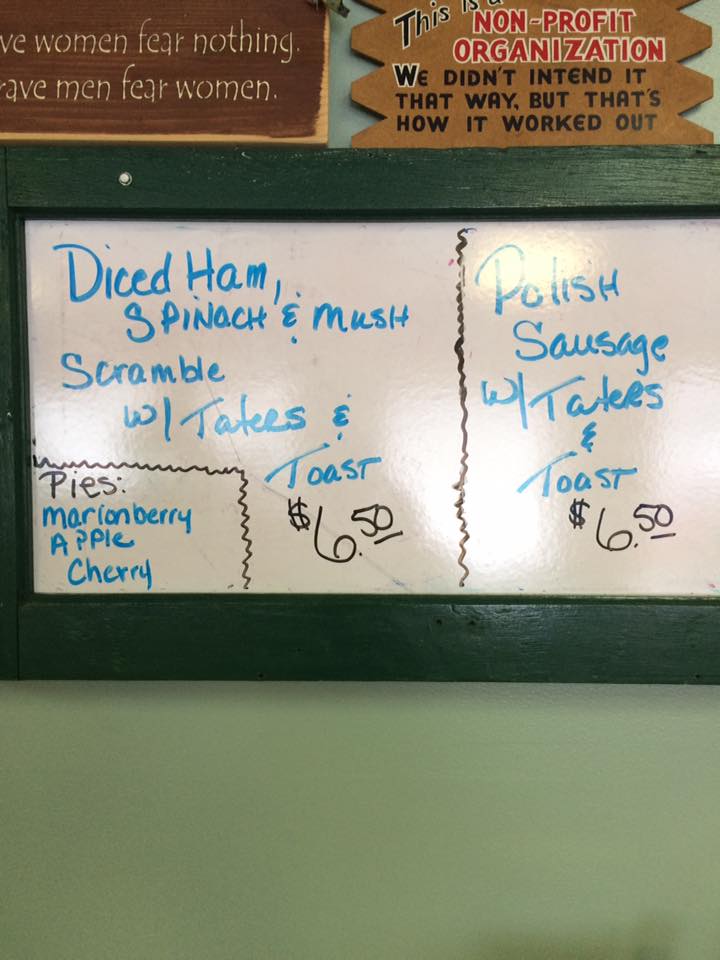 ve women fear nothing.
rave men fear women.
This is a
NON-PROFIT
ORGANIZATION
WE DIDN'T INTEND IT
THAT WAY, BUT THAT'S
HOW IT WORKED OUT
Diced Ham,
SPINACH & MUSH
Scramble
W/ Taters &
Toast
$6.50
Pies:
marionberry
Apple
Cherry
Polish
Sausage
W/ Taters
&
Toast
$6.50